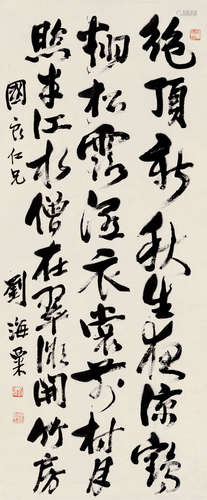 絕頂新秋生夜涼鶴
翻松露滴衣裳前村月
照半江水僧在翠微開竹房
國良仁兄
劉海粟